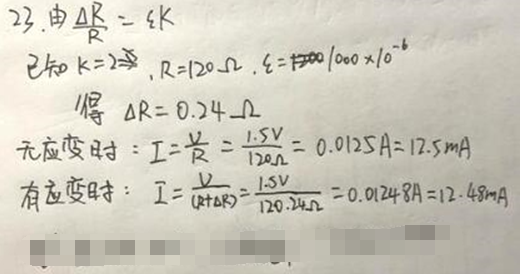 23.由ΔR/R=εK
已知K=2,R=120Ω,ε=1000×10⁻⁶
得 ΔR=0.24Ω
无应变时:I=V/R=1.5V/120Ω=0.0125A=12.5mA
有应变时:I=V/(R+ΔR)=1.5V/120.24Ω=0.01248A=12.48mA